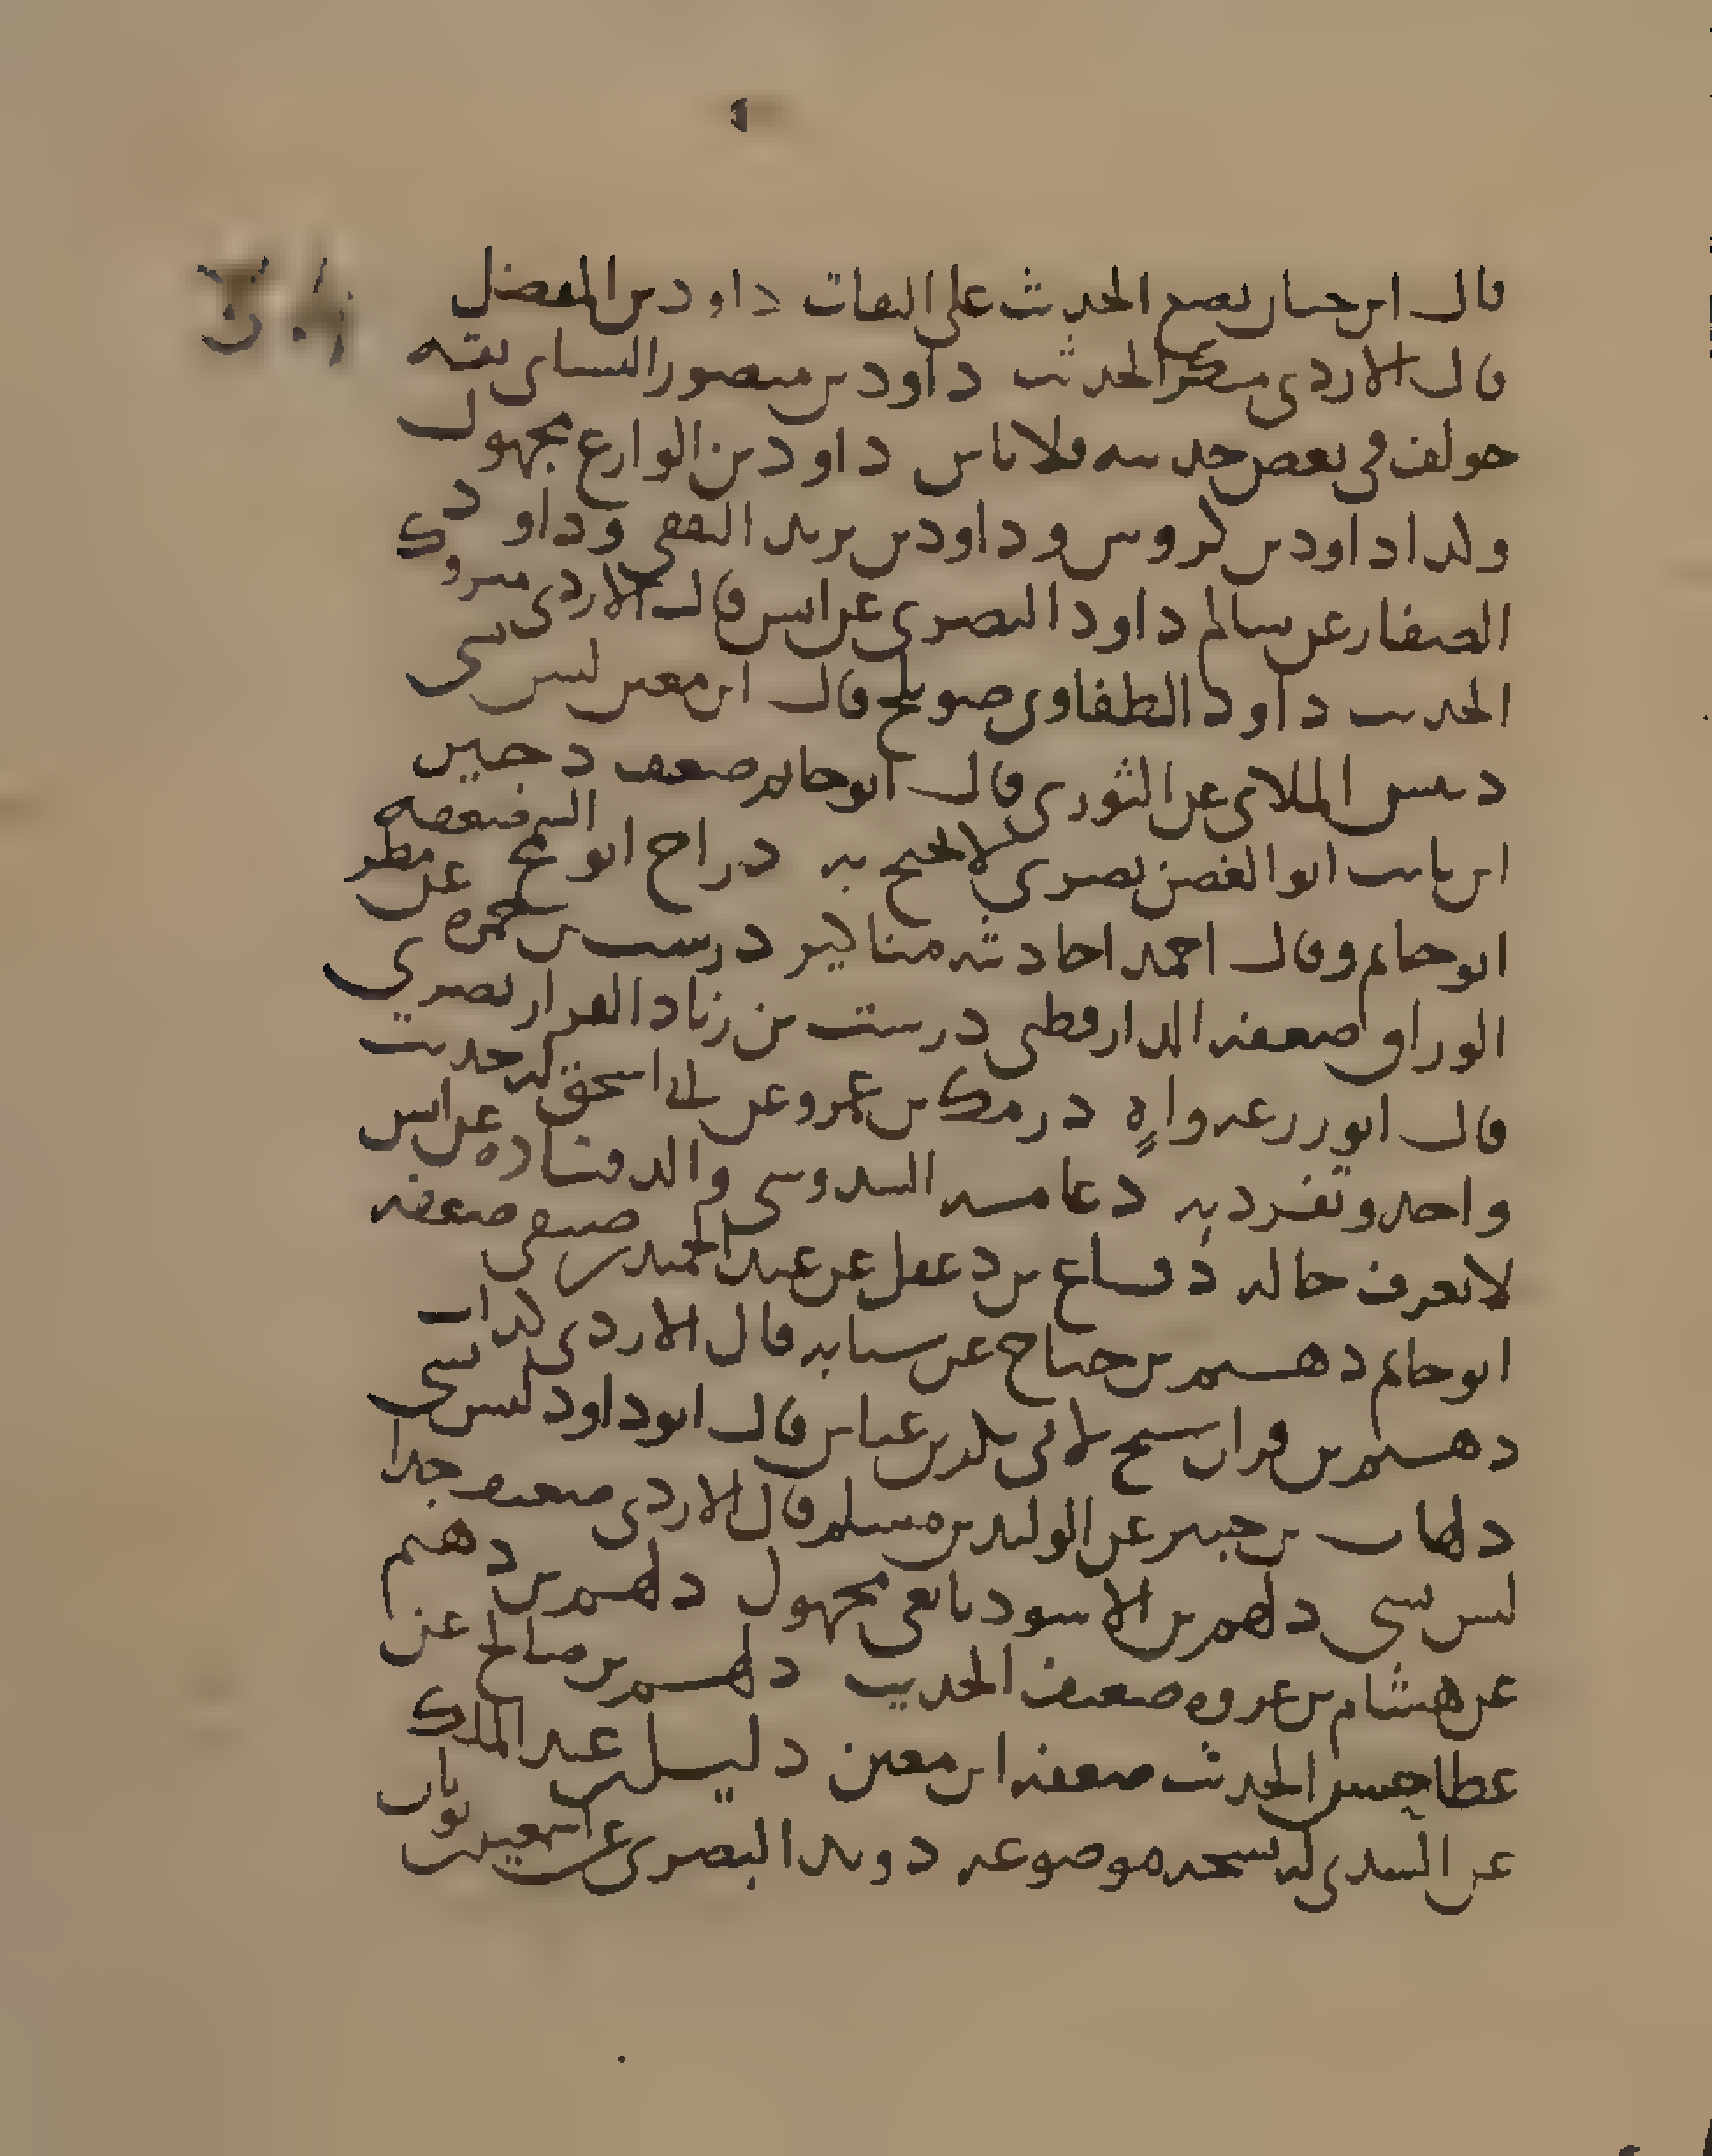 قال ابن حبان يضع الحديث على الثقات داود بن المفضل
قال الازدي منكر الحديث داود بن منصور النسائي ثقه
خولف في بعض حديثه فلا باس داود بن الوازع مجهول
ولذا داود بن كردوس وداود بن يزيد الثقفي وداود
الصفار عن سالم داود البصري عن انس قال الازدي متروك
الحديث داود الطفاوي صويلح قال ابن معين ليس بشي
دبيس الملائي عن الثوري قال ابو حاتم ضعيف دجين
ابن ثابت ابو الغصن بصري لا يحتج به دراج ابو السمح ضعفه
ابو حاتم وقال احمد احاديثه مناكير درست بن حمزه عن مطر
الوراق ضعفه الدارقطني درست بن زياد القزاز بصري
قال ابو زرعه واه درمك بن عمرو عن ابي اسحق له حديث
واحد وتفرد به دعامه السدوسي والد قتاده عن انس
لا يعرف حاله دفاع بن دغفل عن عبد الحميد بن صيفي ضعفه
ابو حاتم دهثم بن جناح عن شبابه قال الازدي كذاب
دهثم بن قران شيخ لابي بكر بن عياش قال ابو داود ليس بشي
دلهاث بن جبير عن الوليد بن مسلم قال الازدي ضعيف جدا
ليس بشي دلهم بن الاسود تابعي مجهول دلهم بن دهثم
عن هشام بن عروه ضعيف الحديث دلهم بن صالح عن
عطا حسن الحديث ضعفه ابن معين دليل بن عبد الملك
عن السدي له نسخه موضوعه دويد البصري عن اسمعيل بن ثوبان